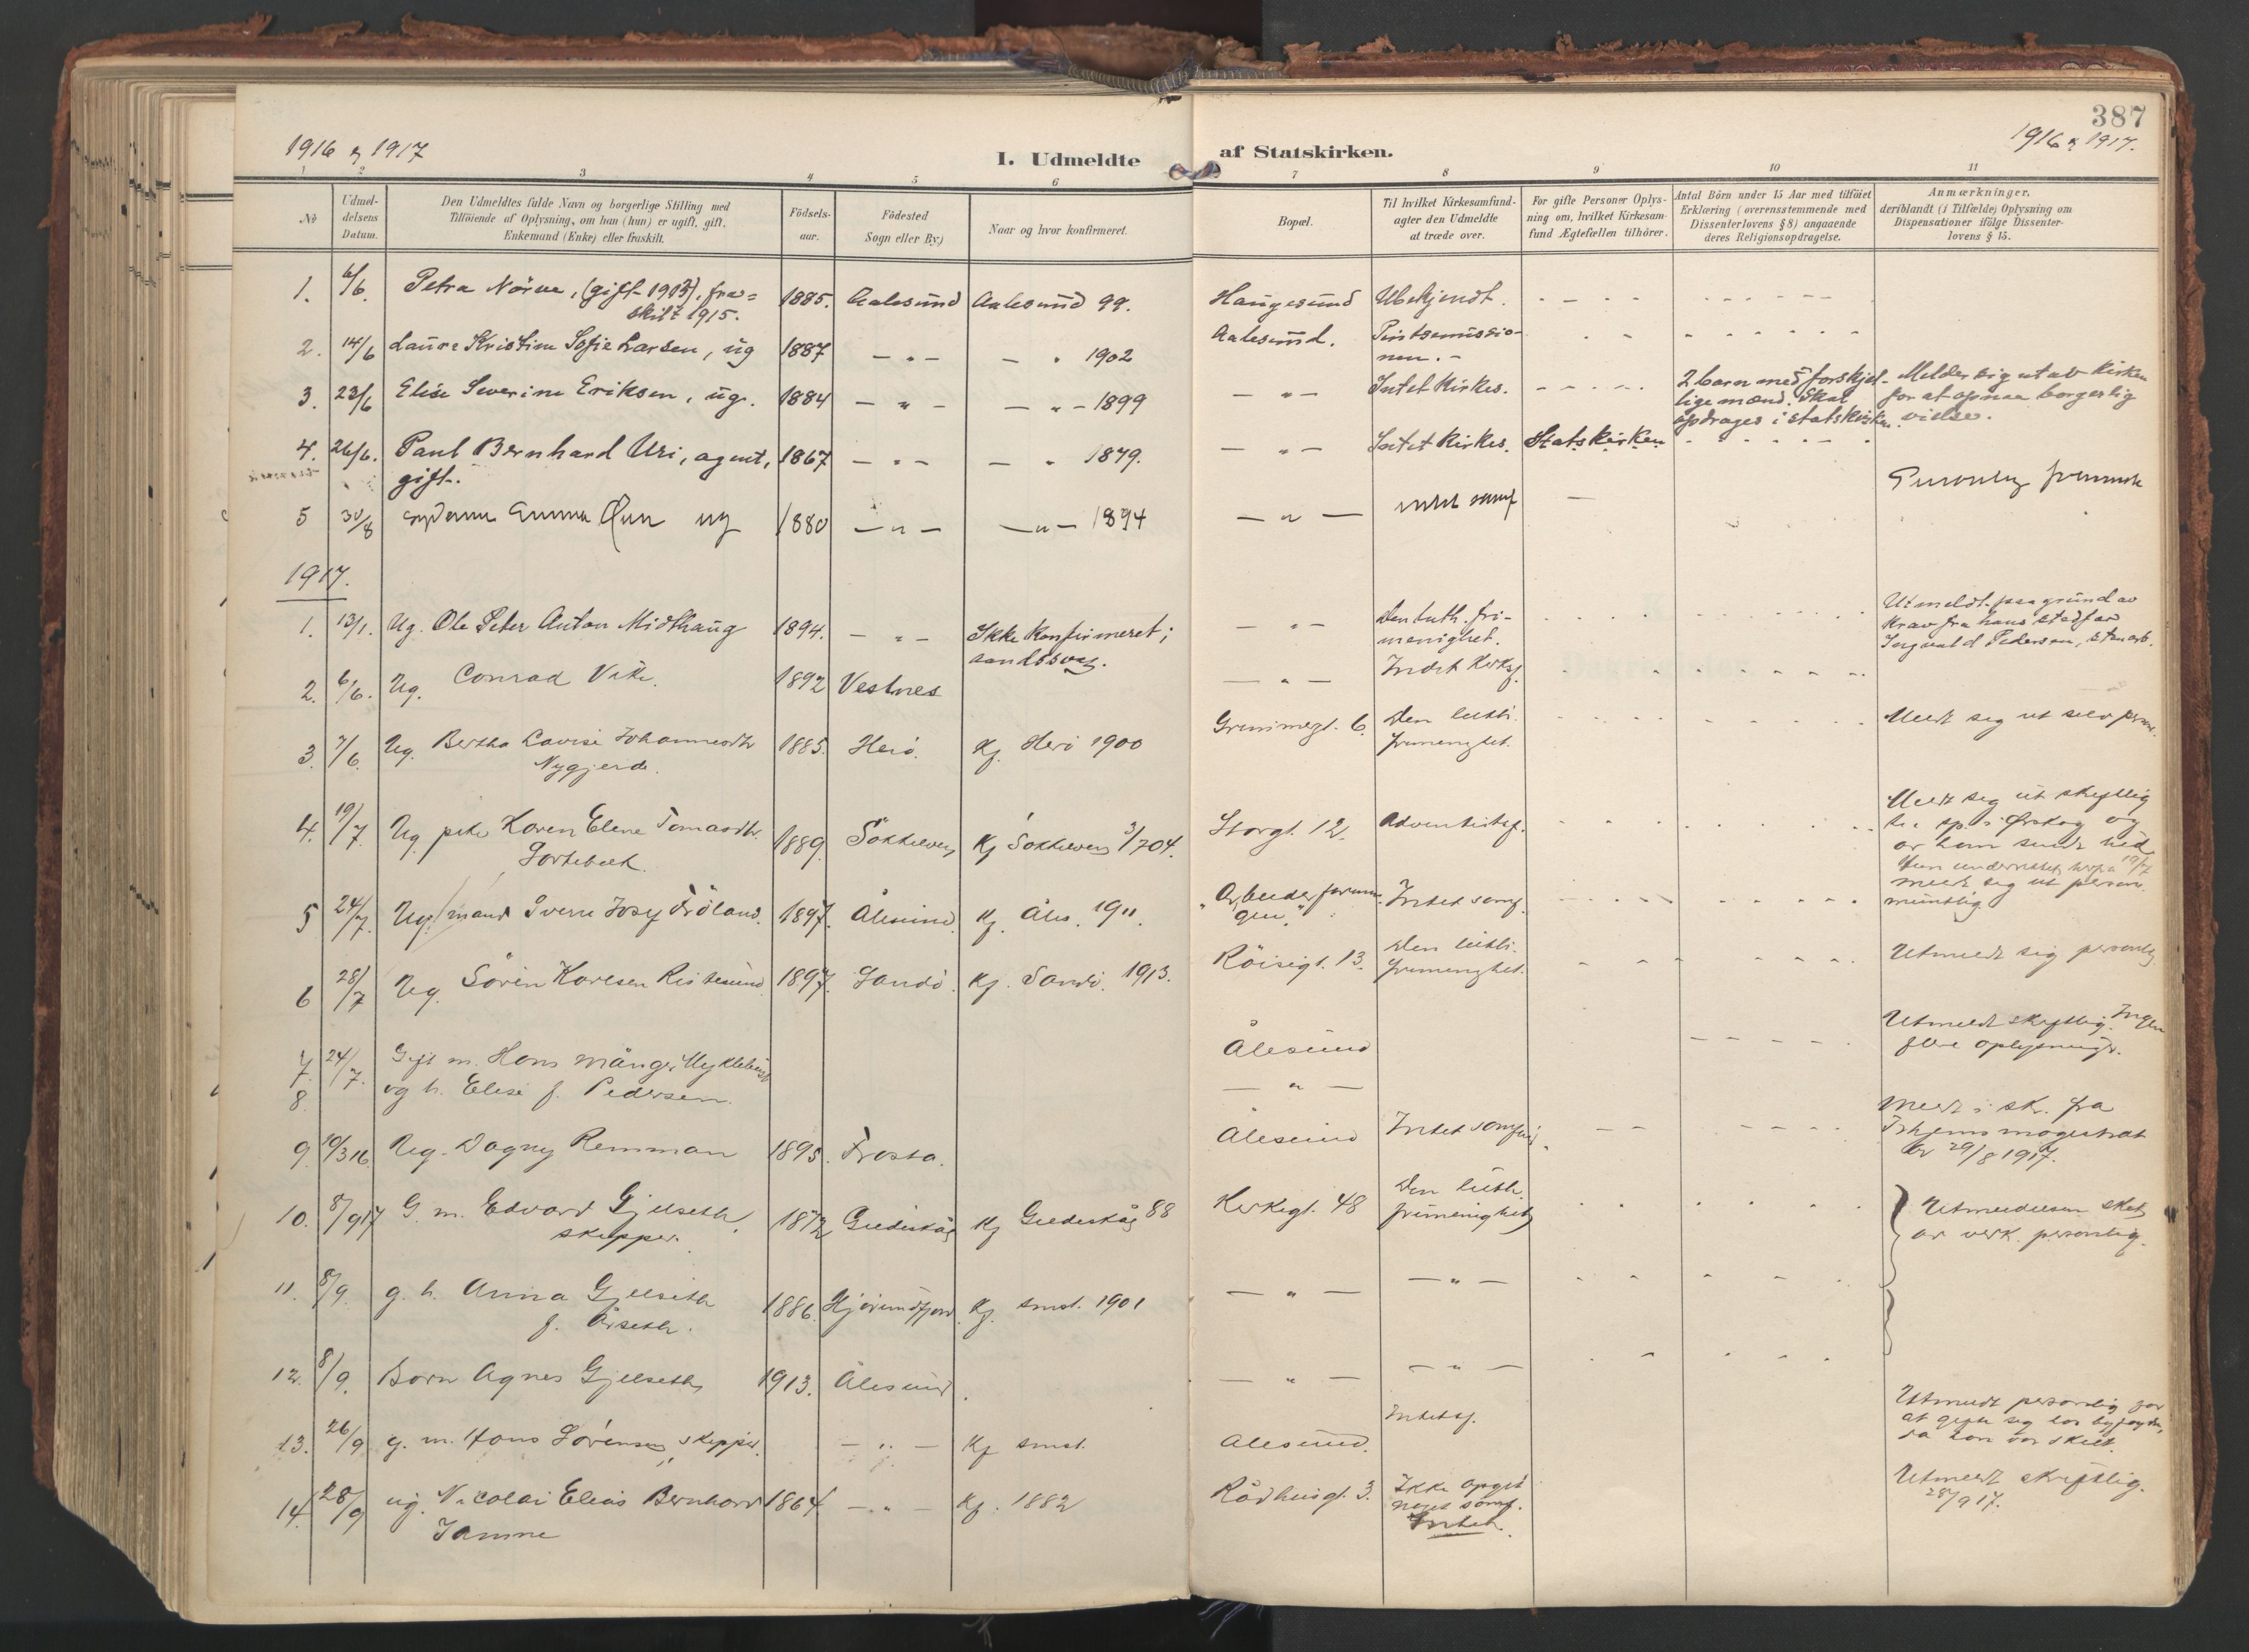 387
1916 & 1917
1916 & 1917.
I. Udmeldte af Statskirken.
1 2 3 4 5 6 7 8 9 10 11
No
Udmeldelsens Datum.
Den Udmeldtes fulde Navn og borgerlige Stilling med
Tilföiende af Oplysning, om han (hun) er ugift, gift,
Enkemand (Enke) eller fraskilt.
Födselsaar.
Födested
Sogn eller By)
Naar og hvor konfirmeret.
Bopæl.
Til hvilket Kirkesamfund-
agter den Udmeldte
at træde over.
For gifte Personer Oplys-
ning om, hvilket Kirkesam-
fund Ægtefællen tilhörer.
Antal Börn under 15 Aar med tilföiet
Erklæring (overensstemmende med
Dissenterlovens § 8) angaaende
deres Religionsopdragelse.
Anmærkninger.
deriblandt (i Tilfælde) Oplysning om
Dispensationer ifölge Dissenter-
lovens § 15.
1. 6/6. Petra Nörve, (gift 1913), fra= 1885. Aalesund Aalesund 99. Haugesund Ubekjendt.
skilt 1915.
2. 14/6 Laura Kristine Sofie Larsen, ug 1887 — " — — " 1902 Aalesund. Pintsemissio-
nen. -
3. 23/6 Elise Severine Eriksen, ug. 1884 — " — — " — 1899 — " — Intet Kirkes. 2 barn med forskjel- Melder sig ut av kirken
lige mænd. Skal for at opnaa borgerlig
opdrages i statskirken. vielse.
4. 26/6. Paul Bernhard Uri, agent, 1867 — " — — " 1879. — " — Intet Kirkes. Statskirken
gift.
5 30/8 Emma ug 1880 — " — — " — 1894 — " — intet samf —
1917.
1. 13/1. Ug. Ole Peter Anton Midthaug 1894. — " — Ikke konfirmeret; — " — Den luth. fri- Utmeldt paa grund av
sandssvag. menighet. krav fra hans stedfar
Ingvald Pedersen, stenarb.
2. 6/6. Ug. Conrad Vik. 1892 Vestnes — " — Intet Kirkes.
3. 7/6. Ug. Bertha Lovise Johannesdtr 1885. Herö. Kf. Herö 1900 Grimmergt. 6. Den luth. Meldt seg ut selv
Nygjerde. frimenighet.
4. 19/7. Ug. pike Karen Elene Tomasdtr. 1889. Sökkelven Kf Sökkelven 3/7 04. Storgt. 12. Adventistsf. Meldt seg ut skriftlig
sp. i Örskog og
Hun underrettet herfra 19/7
5 24/7. Ug. mand Sverre Josef Fröland. 1897. Ålesund. Kf. Åles. 1911. "Arbeiderforenin- Intet samf. meldt seg ut person.
gen." mundtlig.
6 28/7 Ug. Sören Karlsen Ristesund 1897. Sandö. Kf. Sandö. 1913. Röisegt. 13. Den luth. Utmeldt sig personlig.
frimenighet.
7. 24/7. Gift m. Hans Myklebust Ålesund Utmeldt skriftlig. Ingen
flere oplysninger.
8. og h. Elise f. Pedersen. — " —
9. 10/3 16 Ug. Dagny Remman 1895. Frosta. Ålesund Intet samfund. Meldt i sk. fra
Trhjems magistrat
av 29/8 1917.
10. 8/9 17 G. m. Edvard Gjelseth, 1872 Giediskåg Kf Giediskåg 88 Kirkegt. 48 Den luth. Utmeldelsen
skipper. frimenighet personlig.
11. 8/9. g. h. Anna Gjelseth 1886. Hjörundfjord. Kf. smst. 1901 — " — — " —
f. Årseth.
12. 8/9. Barn Agnes Gjelseth 1913. Ålesund. — " — — " —
13. 26/9 g. m. Hans Sörensen, skipper. — " — Kf smst. Ålesund. Intet sf. Utmeldt personlig for
at gifte seg
da han var skilt.
14. 28/9 ug. Nicolai Elias Bernhard 1864. — " — Kf. 1882 Rådhusgt. 3. Ikke opgit Utmeldt skriftlig.
Jamne noget samf. 28/9 17.
Intet.